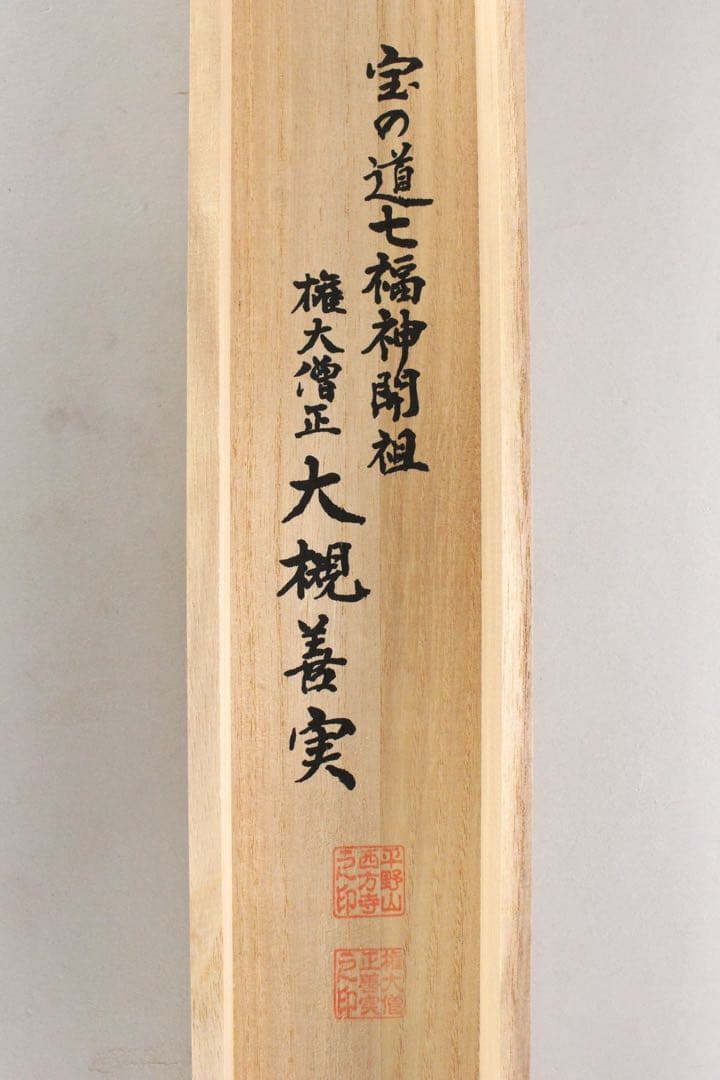 宝の道七福神開祖
権大僧正 大槻善実
平野山
西方寺
之印
権大僧
正善実
之印